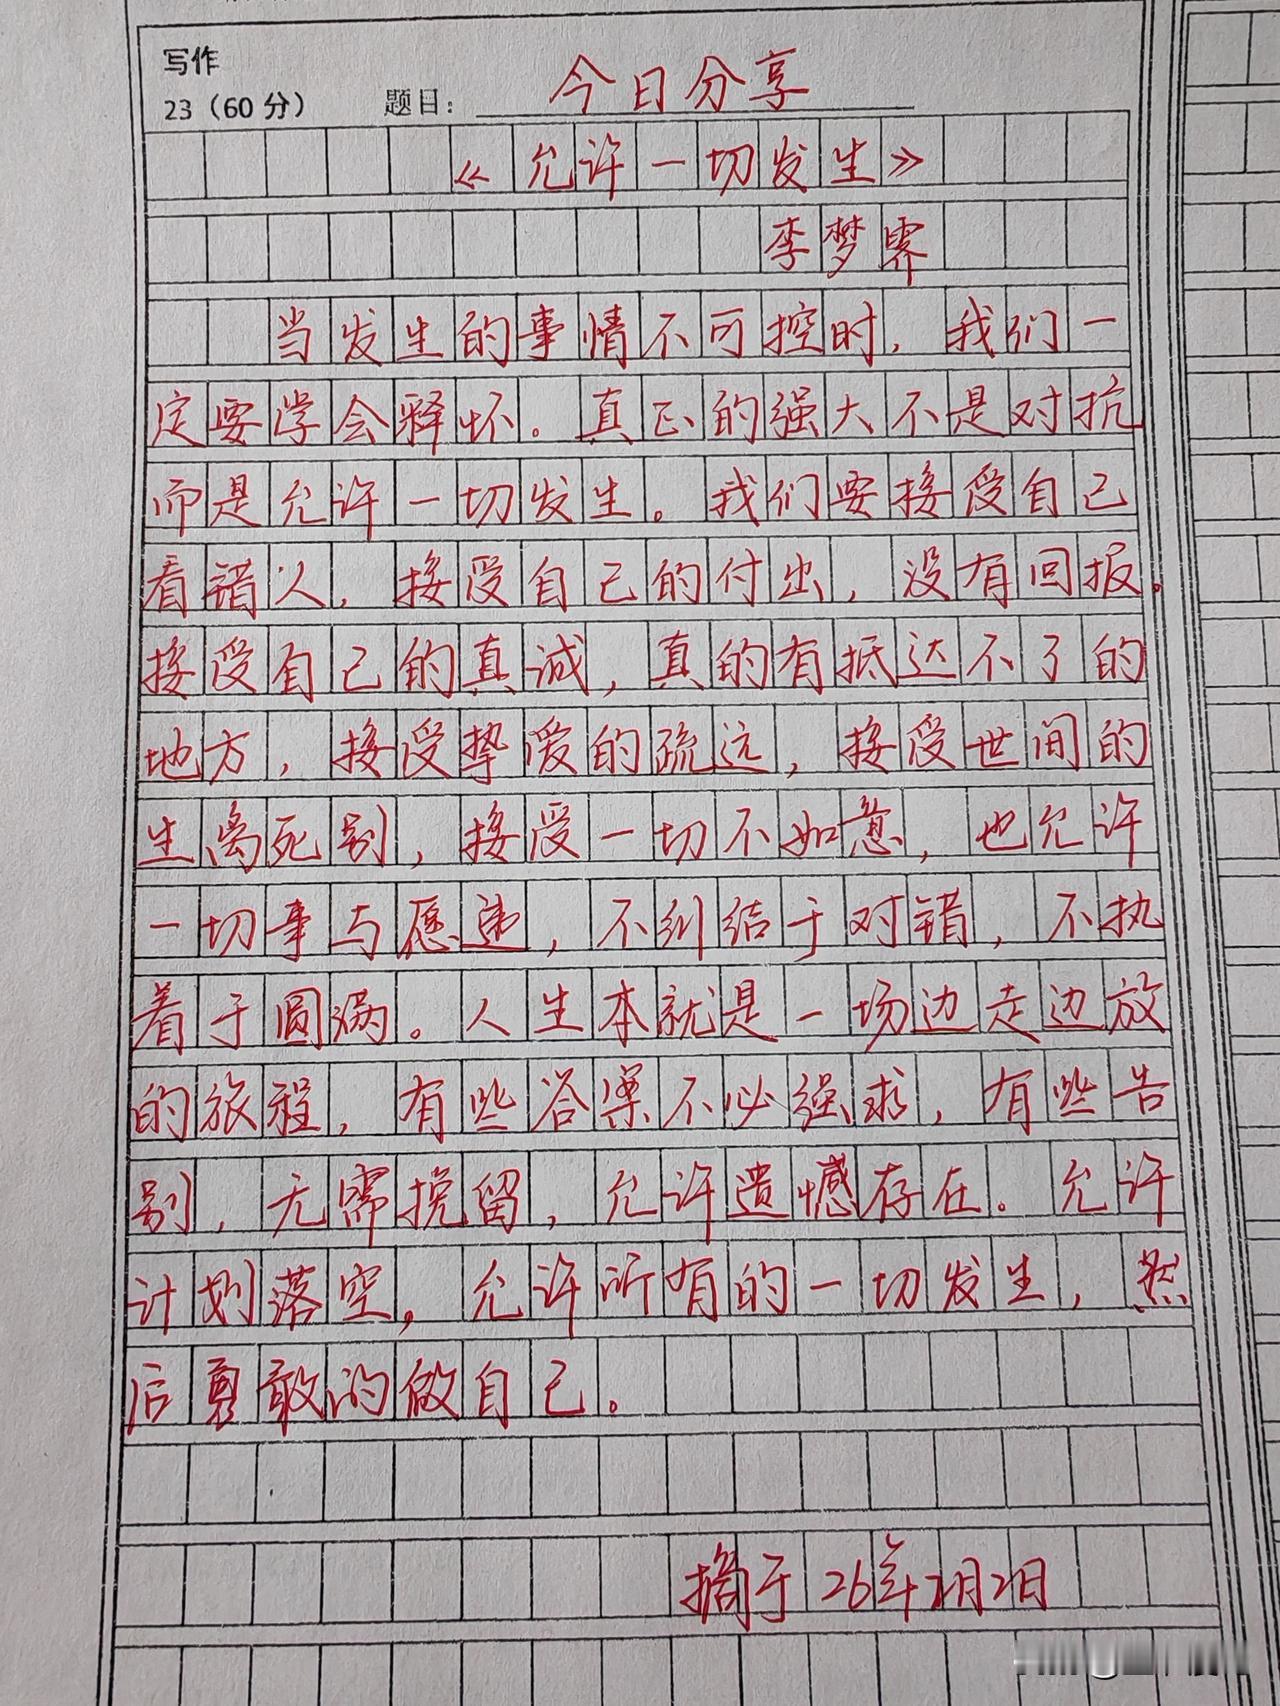 写作
23（60 分） 题目： 今日分享
《允许一切发生》
李梦霁
当发生的事情不可控时，我们一
定要学会释怀。真正的强大不是对抗
而是允许一切发生。我们要接受自己
看错人，接受自己的付出，没有回报。
接受自己的真诚，真的有抵达不了的
地方，接受挚爱的疏远，接受世间的
生离死别，接受一切不如意，也允许
一切事与愿违，不纠结于对错，不执
着于圆满。人生本就是一场边走边放
的旅程，有些答案不必强求，有些告
别，无需挽留，允许遗憾存在。允许
计划落空，允许所有的一切发生，然
后勇敢的做自己。
摘于26年2月2日